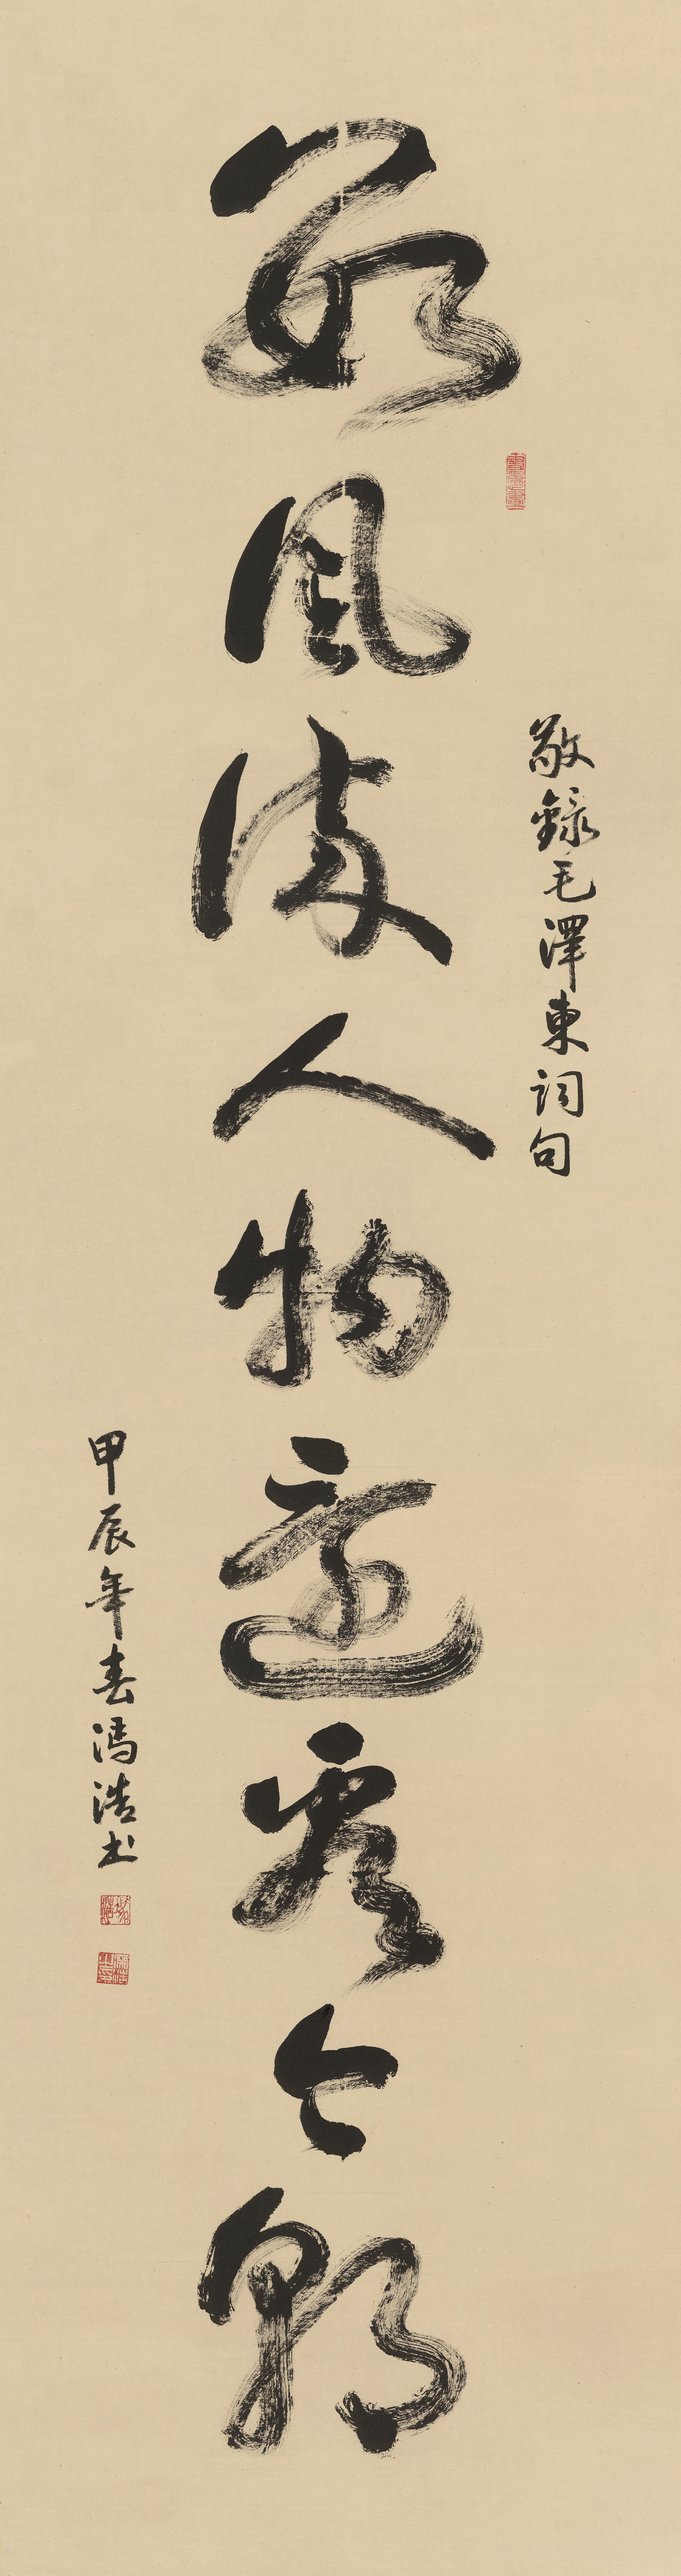 敬錄毛澤東詞句
數風流人物還看今朝
甲辰年春馮浩书